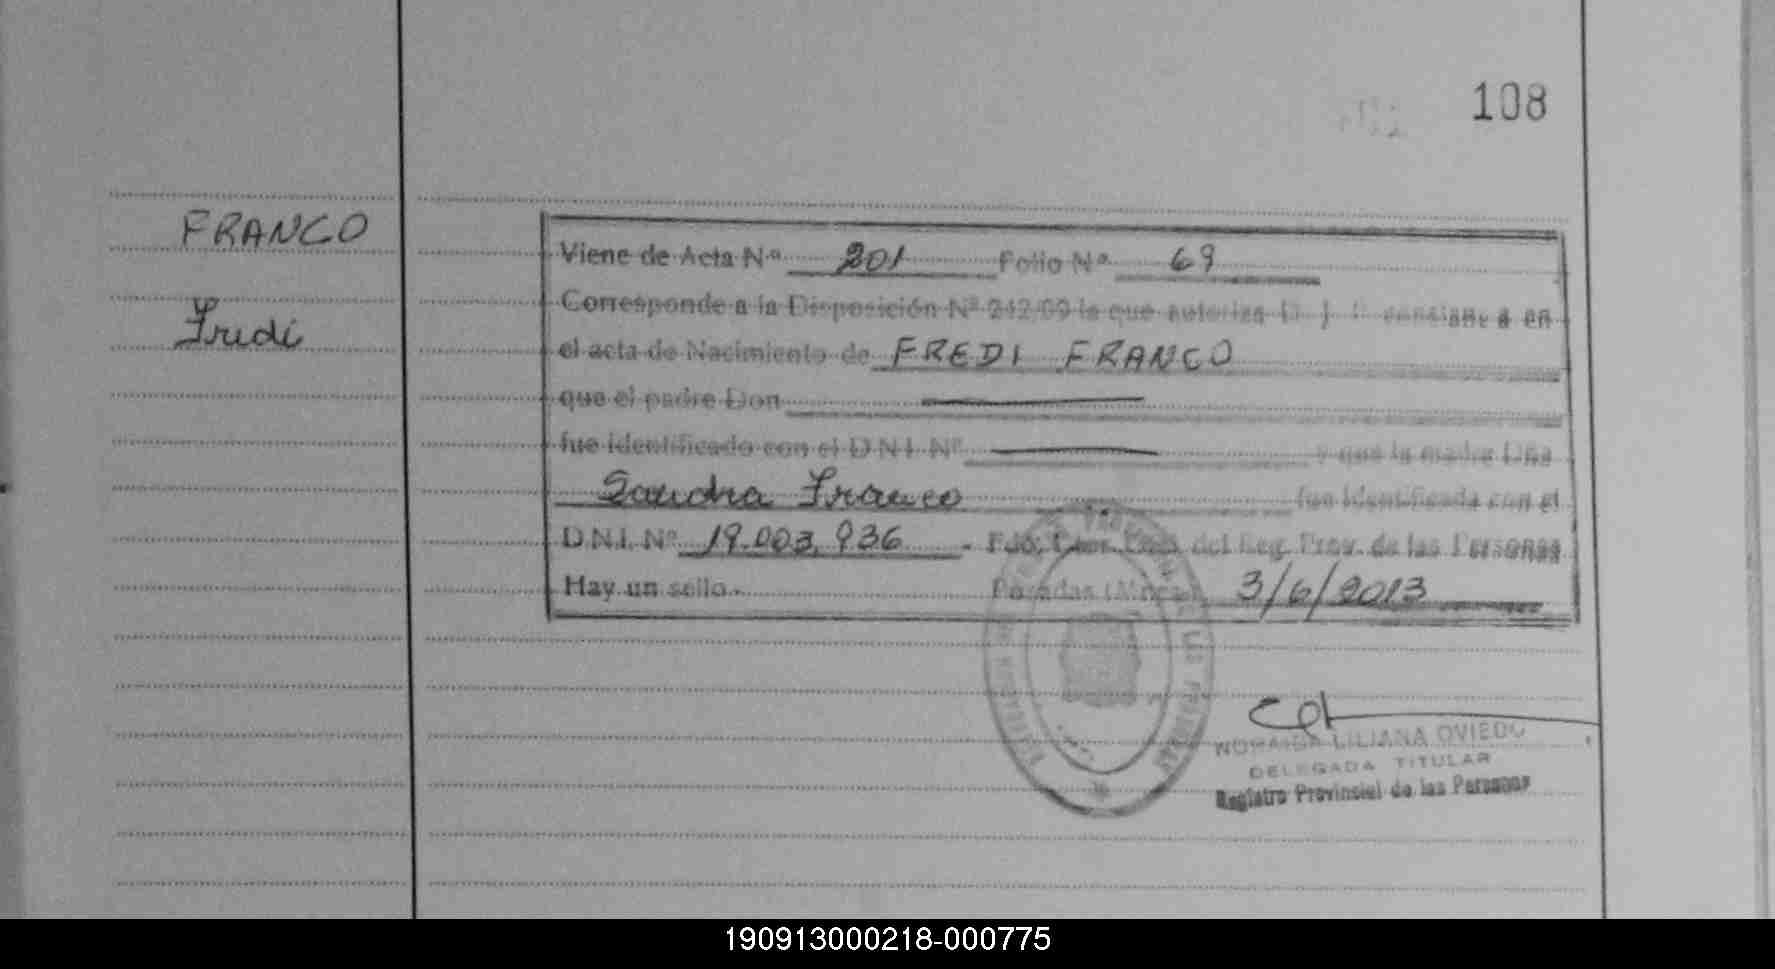 108
FRANCO
Fredi
Viene de Acta Nº 201 Folio Nº 69
Corresponde a la Disposición Nº 242/09 la que autoriza en
el acta de Nacimiento de FREDI FRANCO
que el padre Don
fue identificado con el D.N.I. Nº y que la madre Dña
Sandra Franco fue identificada con el
D.N.I. Nº 19.003.936 - Fdo. del Reg. Prov. de las Personas
Hay un sello. Posadas (Mnes) 3/6/2013
LILIANA OVIEDO
DELEGADA TITULAR
Registro Provincial de las Personas
190913000218-000775